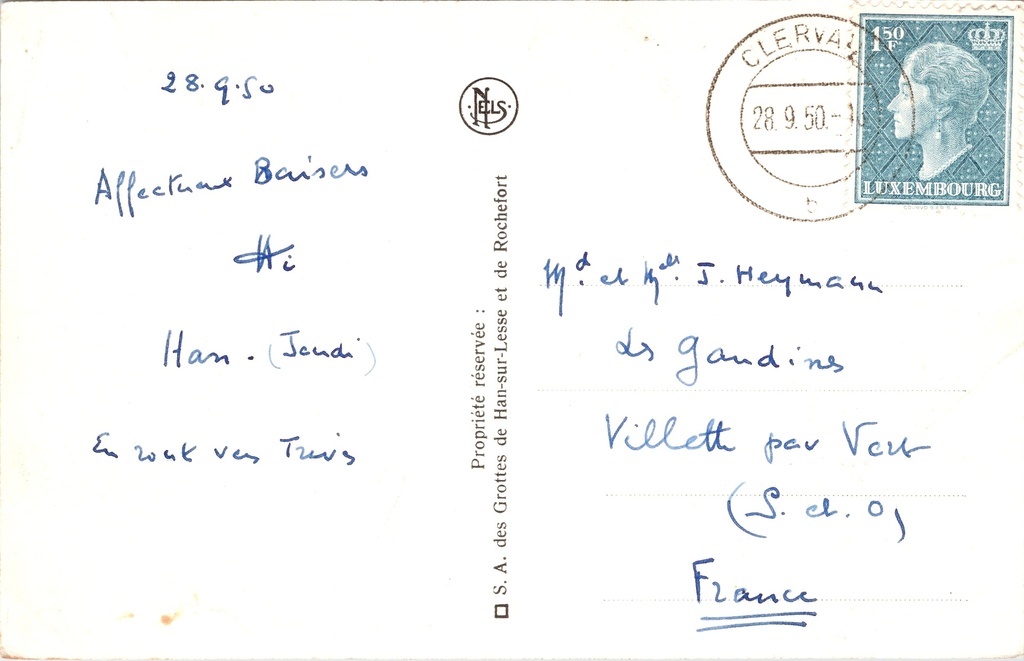 28.9.50
Affectueux Baisers
Han. (Jeudi)
En route vers Trèves
NELS
Propriété réservée :
S. A. des Grottes de Han-sur-Lesse et de Rochefort
CLERVAUX
28.9.50.-
b
1.50 F
LUXEMBOURG
Md. et Melle. J. Heymann
Les Gandines
Villette par Vert
(S. et. O)
France